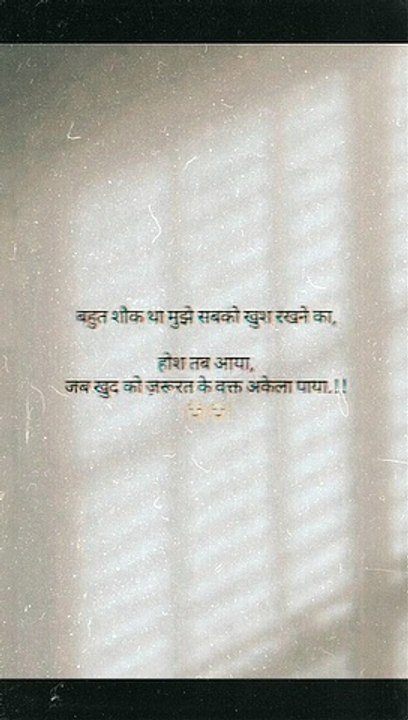 बहुत शौक था मुझे सबको खुश रखने का,
होश तब आया,
जब खुद को ज़रूरत के वक्त अकेला पाया.!!